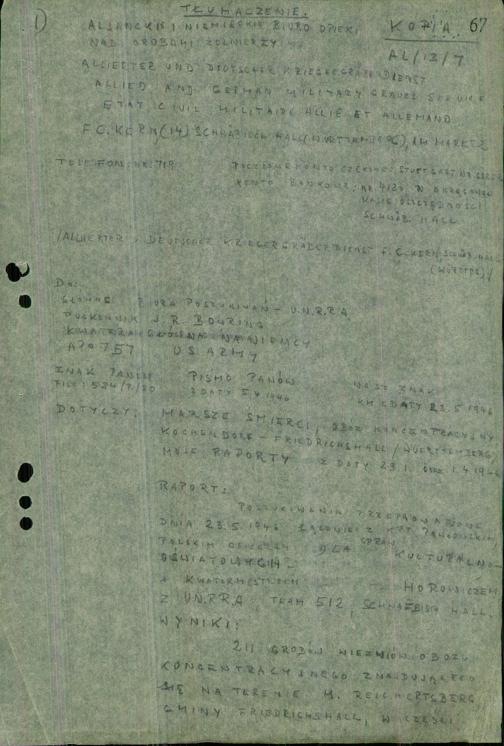 1)
TŁUMACZENIE.
KOPIA 67
ALJANCKIE I NIEMIECKIE BIURO OPIEKI
NAD GROBAMI ŻOŁNIERZY
AL/13/7
ALLIERTER UND DEUTSCHER KRIEGSGRÄBERDIENST
ALLIED AND GERMAN MILITARY GRAVES SERVICE
ETAT CIVIL MILITAIRE ALLIÉ ET ALLEMAND
F.C. KERN (14) SCHWÄBISCH HALL (WÜRTTEMBERG), AM MARKT 2
TELEFON: NR. 719
POCZTOWE KONTO CZEKOWE: STUTTGART
KONTO BANKOWE: NR 4120 W OKRĘGOWEJ
KASIE OSZCZĘDNOŚCI
SCHWÄB. HALL
/ALLIERTER U. DEUTSCHER KRIEGERGRÄBERDIENST F.C. KERN SCHWÄB. HALL
(WÜRTTBG)/
DO:
GŁÓWNE BIURA POSZUKIWAŃ - U.N.R.R.A
PUŁKOWNIK J.R. BOWRING
KWATERA GŁÓWNA NA NIEMCY
APO 757 US ARMY
ZNAK PANÓW PISMO PANÓW NASZ ZNAK
Z DATY 1946 Z DATY 23.5.1946
DOTYCZY: MARSZE ŚMIERCI, OBÓZ KONCENTRACYJNY
KOCHENDORF - FRIEDRICHSHALL /WUERTTEMBERG/
MOJE RAPORTY Z DATY 23.1. ORAZ 1.4.1946
RAPORT:
POSZUKIWANIA PRZEPROWADZONE
DNIA 23.5.1946 ŁĄCZNIE Z KPT.
POLSKIM OFICEREM DLA SPRAW KULTURALNO-
OŚWIATOWYCH -
I KWATERMISTRZEM HOROWICZEM
Z U.N.R.R.A TEAM 512, SCHWAEBISCH HALL.
WYNIKI:
211 GROBÓW WIĘŹNIÓW OBOZU
KONCENTRACYJNEGO ZNAJDUJĄCEGO
SIĘ NA TERENIE H. REICHERTSBERG
GMINY FRIEDRICHSHALL, W CZĘŚCI